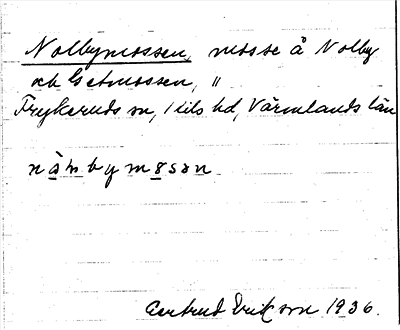 Nolbymossen, mosse å Nolby
och Getmossen, "
Frykeruds sn, Kils hd, Värmlands län
Gertrud Ericson 1936.